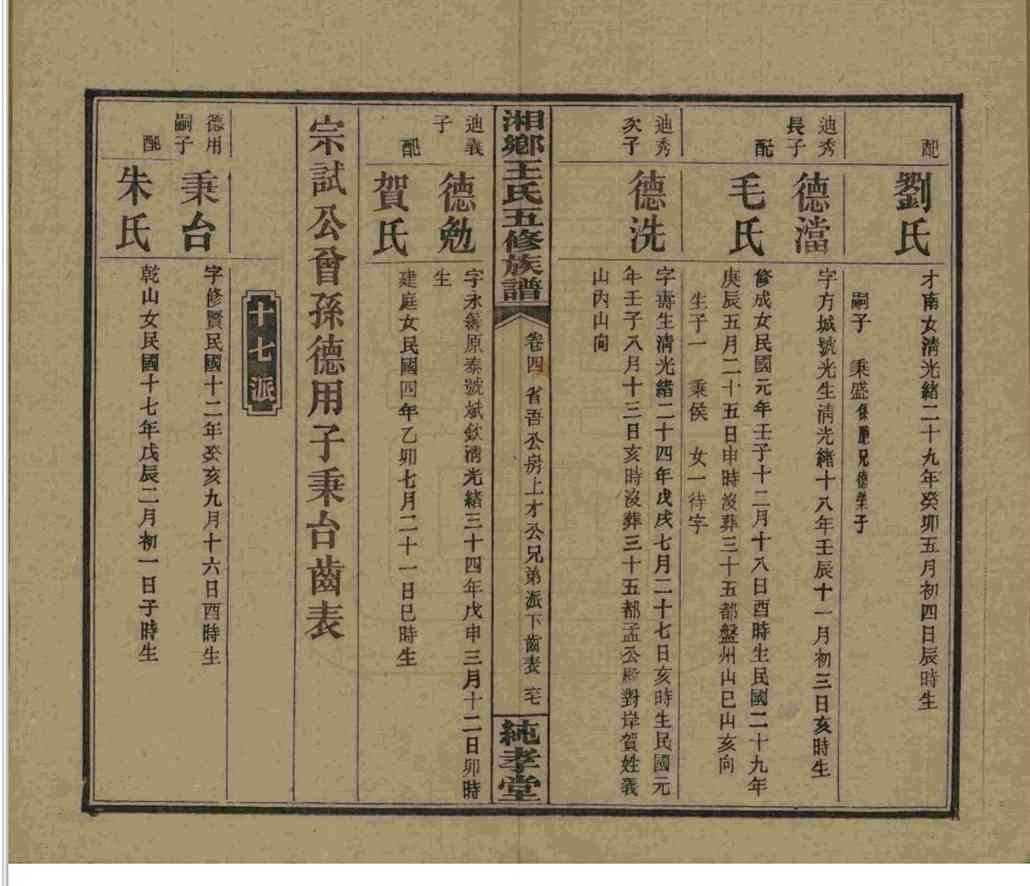 配
劉氏
才南女清光緒二十九年癸卯五月初四日辰時生
嗣子 秉盛係胞兄德榮子
迪秀
長子
德澢
字方城號光生清光緒十八年壬辰十一月初三日亥時生
配
毛氏
修成女民國元年壬子十二月十八日酉時生民國二十九年
庚辰五月二十五日申時沒葬三十五都盤州山巳山亥向
生子一 秉侯 女一待字
迪秀
次子
德洗
字壽生清光緒二十四年戊戌七月二十七日亥時生民國元
年壬子八月十三日亥時沒葬三十五都孟公殿對岸賀姓義
山丙山向
湘鄉王氏五修族譜
卷四 省吾公房上才公兄弟派下齒表
純孝堂
迪義
子
德勉
字永 原泰號斌欽清光緒三十四年戊申三月十二日卯時
生
配
賀氏
建庭女民國四年乙卯七月二十一日巳時生
宗試公曾孫德用子秉台齒表
十七派
德用
嗣子
秉台
字修賢民國十二年癸亥九月十六日酉時生
配
朱氏
乾山女民國十七年戊辰二月初一日子時生